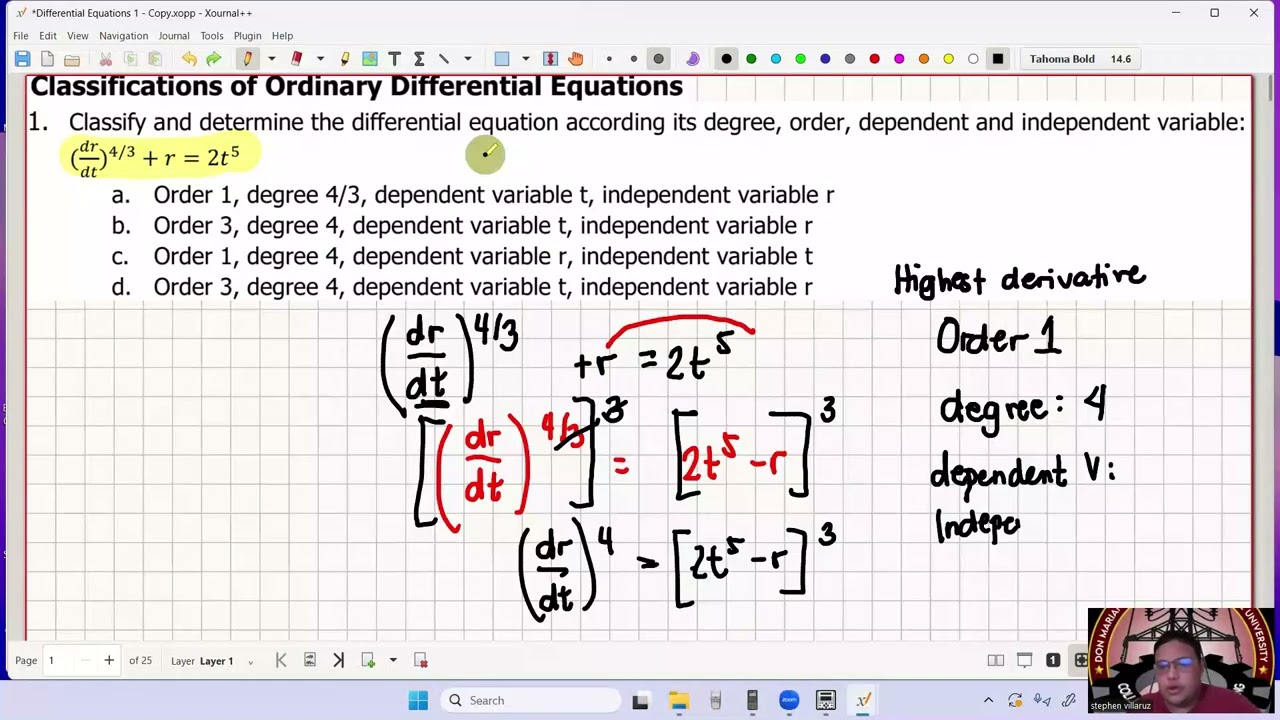 *Differential Equations 1 - Copy.xopp - Xournal++
File Edit View Navigation Journal Tools Plugin Help
Tahoma Bold 14.6
Classifications of Ordinary Differential Equations
1. Classify and determine the differential equation according its degree, order, dependent and independent variable:
(dr/dt)^4/3 + r = 2t^5
a. Order 1, degree 4/3, dependent variable t, independent variable r
b. Order 3, degree 4, dependent variable t, independent variable r
c. Order 1, degree 4, dependent variable r, independent variable t
d. Order 3, degree 4, dependent variable t, independent variable r
Highest derivative
(dr/dt)^4/3 +r = 2t^5
Order 1
[(dr/dt)^4/3]^3 = [2t^5 -r]^3
degree: 4
dependent V:
Indepe
(dr/dt)^4 = [2t^5 -r]^3
DON MARIAN
UNIVERSITY
stephen villaruz
Page 1 of 25 Layer Layer 1
Search
zoom